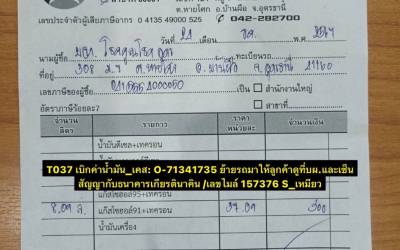 ต.หายโศก อ.บ้านผือ จ.อุดรธานี
เลขประจำตัวผู้เสียภาษีอากร 0 4135 49000 525 042-282700
วันที่ 21 เดือน พ.ศ.
นามผู้ซื้อ ทะเบียนรถ
ที่อยู่ 308 41160
เลขภาษีของผู้ซื้อ เป็น สำนักงานใหญ่
อัตราภาษีร้อยละ7 สาขาที่
จำนวน ลิตร รายการ ราคา หน่วยละ จำนวนเงิน
น้ำมันดีเซล+เทครอน
T037 เบิกค่าน้ำมัน_เคส: O-71341735 ย้ายรถมาให้ลูกค้าดูที่บผ.และเซ็น
สัญญากับธนาคารเกียรตินาคิน /เลขไมล์ 157376 S_เหมียว
แก๊สโซฮอล์95+เทครอน
8.09 ล. แก๊สโซฮอล์91+เทครอน 37.09 300
น้ำมันเครื่อง